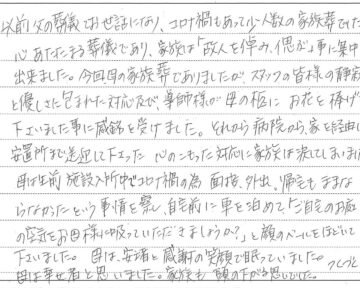 以前父の葬儀でお世話になり、コロナ禍もあって少人数の家族葬でした
心あたたまる葬儀であり、家族は「故人を悼み、偲ぶ」事に集中
出来ました。今回母の家族葬でありましたが、スタッフの皆様の静寂
と優しさに包まれた対応及び導師様が母の柩にお花を捧げ
下さいました事に感銘を受けました。それから病院から、家を経由し
安置所まで送迎して下さった心のこもった対応に家族は涙してしまいま
母は生前施設入所中でコロナ禍の為面接、外出、帰宅もままな
らなかったという事情を察し、自宅前に車を泊めて「ご自宅のお庭
の空気をお母様に吸っていただきましょうか?」と顔のベールをほどいて
下さいました。母は、安堵と感謝の笑顔で眠っていました。
母は幸せ者と思いました。家族も頭の下がる思いでした。